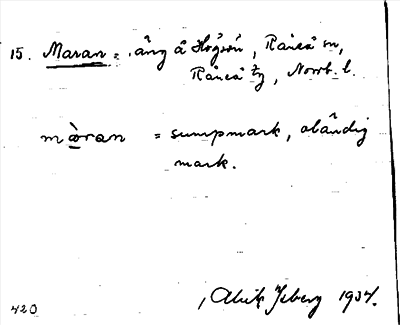 15. Maran = äng å Högsön, Råneå sn,
Råneå tg, Norrb. l.
mòran = sumpmark, oländig
mark.
420
Isberg 1934.